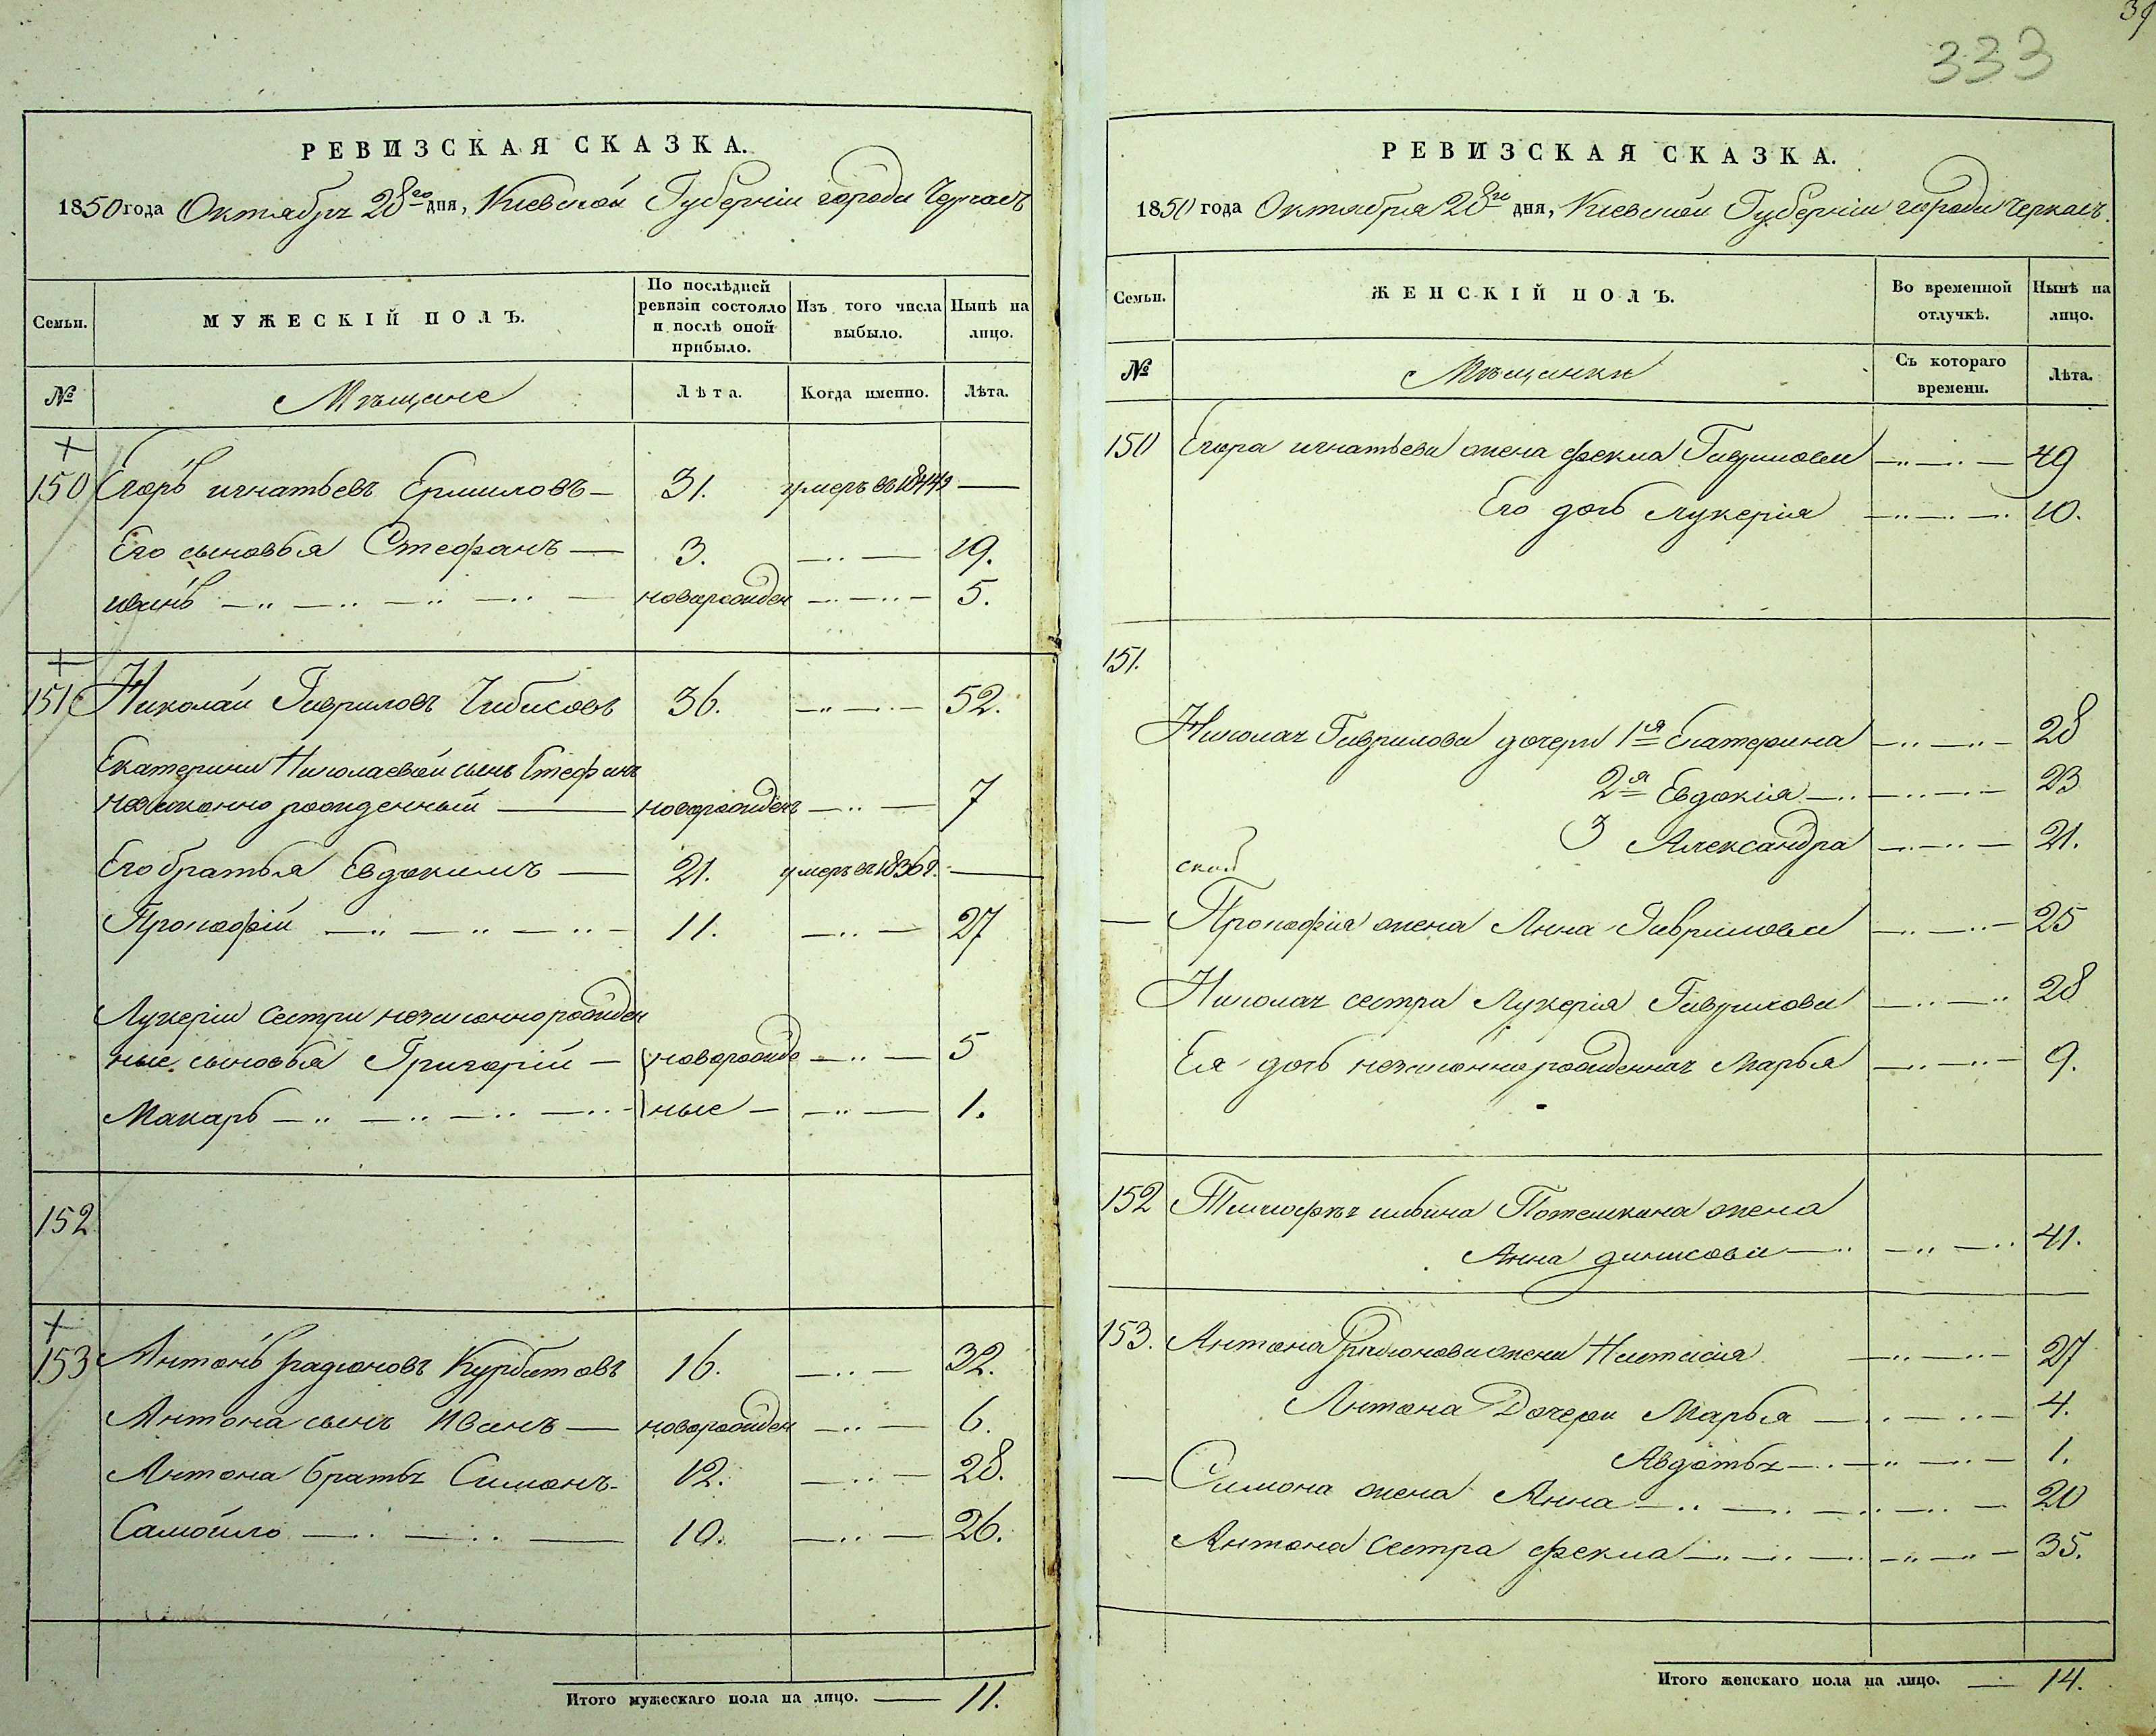 39
333
РЕВИЗСКАЯ СКАЗКА.
1850 года Октября 28го дня, Киевской Губерніи города Черкасъ
Семьи.
МУЖЕСКІЙ ПОЛЪ.
По послѣдней ревизіи состояло и послѣ оной прибыло.
Изъ того числа выбыло.
Нынѣ на лицо.
№
Мѣщане
Лѣта.
Когда именно.
Лѣта.
150 Егоръ игнатьевъ Ермиловъ — 31. умеръ въ —
Его сыновья Стефанъ — 3. — 19.
иванъ — новорожден — 5.
151 Николай Гавриловъ Чибисовъ 36. — 52.
Екатерины Николаевой сынъ Стефанъ
незаконно рожденный — новорожденъ — 7
Его братья Евдокимъ — 21. умеръ въ 1836 г. —
Прокофій — 11. — 27
Лукеріи сестры незаконнорожден
ные сыновья Григорій — новорожде — 5
Макаръ — ные — 1.
152
153 Антонъ радіоновъ Курбатовъ 16. — 32.
Антона сынъ Иванъ — новорожден — 6.
Антона братья Симонъ 12. — 28.
Самойло — 10. — 26.
Итого мужескаго пола на лицо. — 11.
РЕВИЗСКАЯ СКАЗКА.
1850 года Октября 28го дня, Киевской Губерніи города Черкасъ.
Семьи.
ЖЕНСКІЙ ПОЛЪ.
Во временной отлучкѣ.
Нынѣ на лицо.
№
Мѣщанки
Съ котораго времени.
Лѣта.
150 Егора игнатьева жена Фекла Гаврилова — 49
Его дочь Лукерія — 10.
151.
Николая Гаврилова дочери 1я Екатерина — 28
2я Евдокія — 23
3 Александра — 21.
Прокофія жена Анна Гаврилова — 25
Николая сестра Лукерія Гаврилова — 28
Ея дочь незаконнорожденная Марья — 9.
152 Тимофѣя ильина Потешкина жена
Анна динисова — 41.
153. Антона Радіонова жена Настасія — 27
Антона Дочери Марья — 4.
Авдотья — 1.
Симона жена Анна — 20
Антона Сестра Фекла — 35.
Итого женскаго пола на лицо. — 14.